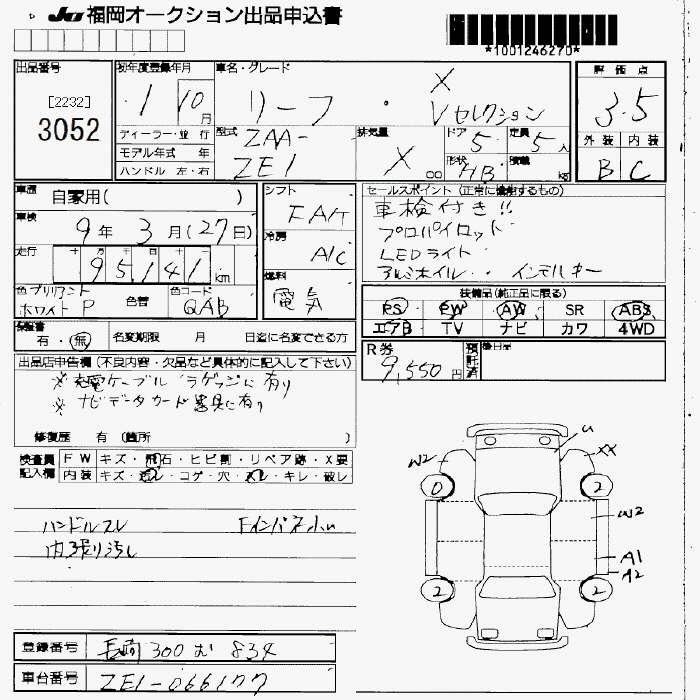 JU 福岡オークション出品申込書
*1001246270*
出品番号
[2232]
3052
初年度登録年月
1 10 月
ディーラー・並行
モデル年式 年
ハンドル 左・右
車名・グレード
リーフ ・ X
Vセレクション
型式 ZAA-
ZE1
排気量 X cc
ドア 5
形状 HB
定員 5 人
積載 kg
評価点
3.5
外装 内装
B C
車歴 自家用( )
車検 9 年 3 月 (27日)
走行 十 万 千 百 十
95,141 km
色 ブリリアント
ホワイトP
色替
色コード QAB
シフト FAT
冷房 A/C
燃料 電気
セールスポイント(正常に機動するもの)
車検付き!!
プロパイロット
LEDライト
アルミホイル・・ インテルキー
装備品(純正品に限る)
PS PW AW SR ABS
エアB TV ナビ カワ 4WD
保証書 有・無
名変期限 月 日迄に名変できる方
R券 9,550円
預託済
後日品
出品店申告欄(不良内容・欠品など具体的に記入して下さい)
※充電ケーブル ラゲッジに有り
※ナビデータカード 器具に有り
修復歴 有(箇所 )
検査員記入欄
FW キズ・飛石・ヒビ割・リペア跡・X要
内装 キズ・汚レ・コゲ・穴・スレ・キレ・破レ
ハンドルスレ
内張り汚し
U
W2
XX
0
2
W2
A1
A2
2
2
登録番号 長崎 300 む 834
車台番号 ZE1-066177